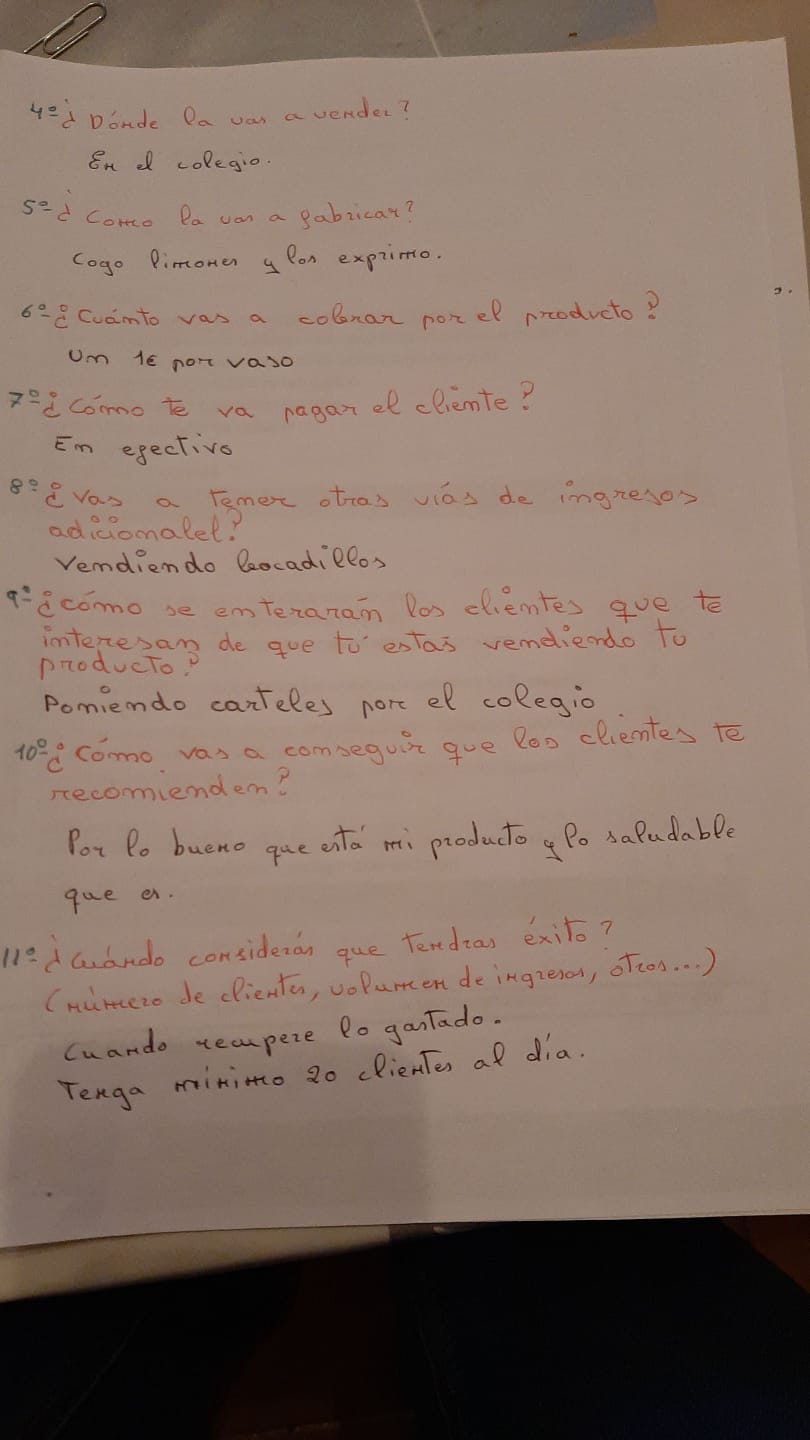 4º ¿Dónde la vas a vender?
En el colegio.
5º ¿Como la vas a fabricar?
Cogo limones y los exprimo.
6º ¿Cuánto vas a cobrar por el producto?
Un 1€ por vaso
7º ¿Cómo te va pagar el cliente?
En efectivo
8º ¿Vas a tener otras viás de ingresos
adicionalel?
Vendiendo bocadillos
9º ¿cómo se enteraran los clientes que te
interesan de que tú estas vendiendo tu
producto?
Poniendo carteles por el colegio
10º ¿Cómo vas a conseguir que los clientes te
recomienden?
Por lo bueno que está mi producto y lo saludable
que es.
11º ¿Cuándo considerás que tendras éxito?
(número de clientes, volumen de ingresos, otros...)
Cuando recupere lo gastado.
Tenga mínimo 20 clientes al día.